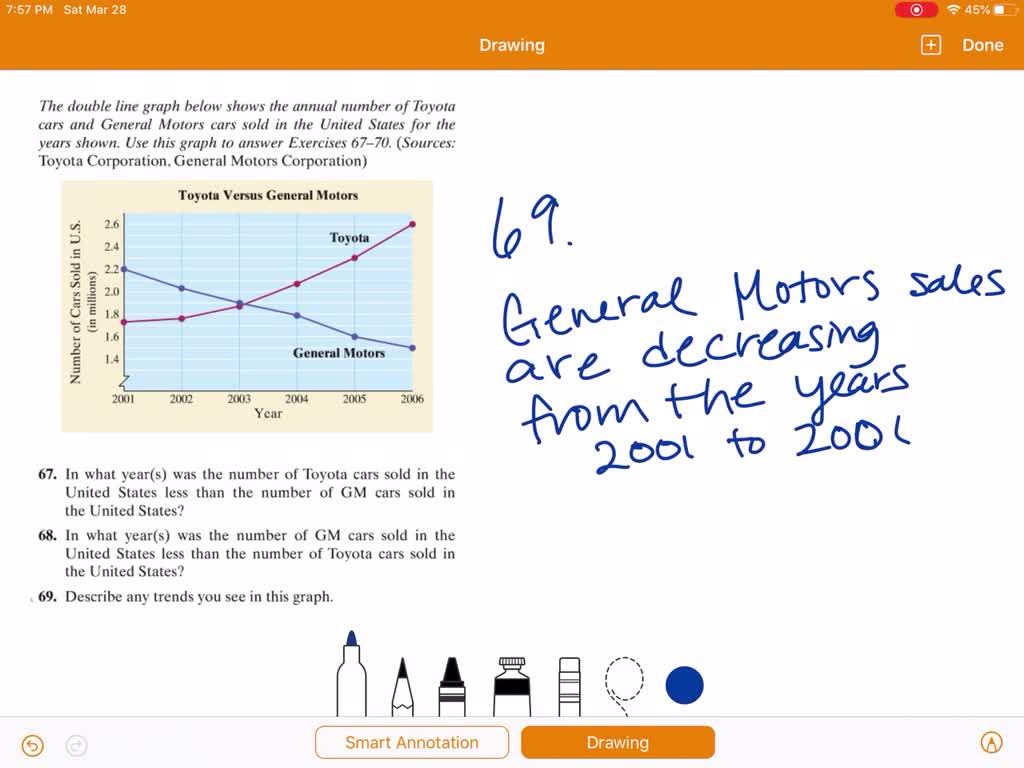 7:57 PM Sat Mar 28
45%
Drawing
Done
The double line graph below shows the annual number of Toyota
cars and General Motors cars sold in the United States for the
years shown. Use this graph to answer Exercises 67–70. (Sources:
Toyota Corporation, General Motors Corporation)
Toyota Versus General Motors
Number of Cars Sold in U.S.
(in millions)
2.6
2.4
2.2
2.0
1.8
1.6
1.4
Toyota
General Motors
2001 2002 2003 2004 2005 2006
Year
67. In what year(s) was the number of Toyota cars sold in the
United States less than the number of GM cars sold in
the United States?
68. In what year(s) was the number of GM cars sold in the
United States less than the number of Toyota cars sold in
the United States?
69. Describe any trends you see in this graph.
69.
General Motors sales
are decreasing
from the years
2001 to 200(
Smart Annotation
Drawing